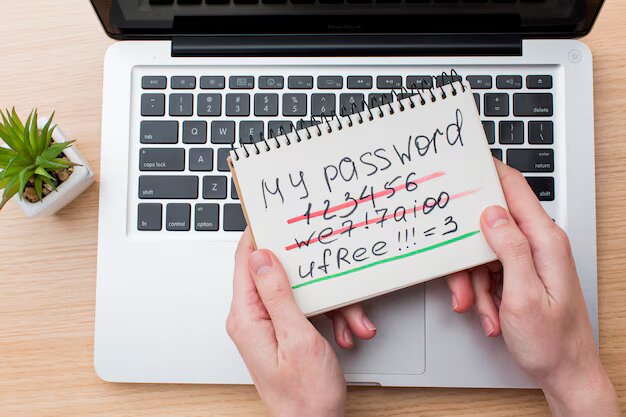 My password
123456
we7!7aio0
ufRee!!!=3
delete
tab
Q
W
caps lock
A
enter
return
shift
shift
control
option